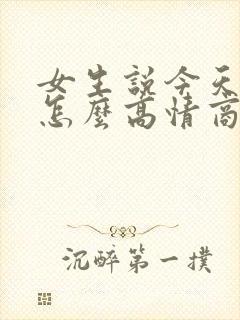 女生説今天
怎麼高情商
沉醉第一撲